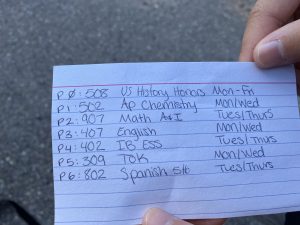 P 0: 508 US History Honors Mon-Fri
P1: 502 Ap Chemistry Mon/Wed
P2: 907 Math A&I Tues/Thurs
P3: 407 English Mon/Wed
P4: 402 IB ESS Tues/Thurs
P5: 309 TOK Mon/Wed
P6: 802 Spanish Tues/Thurs